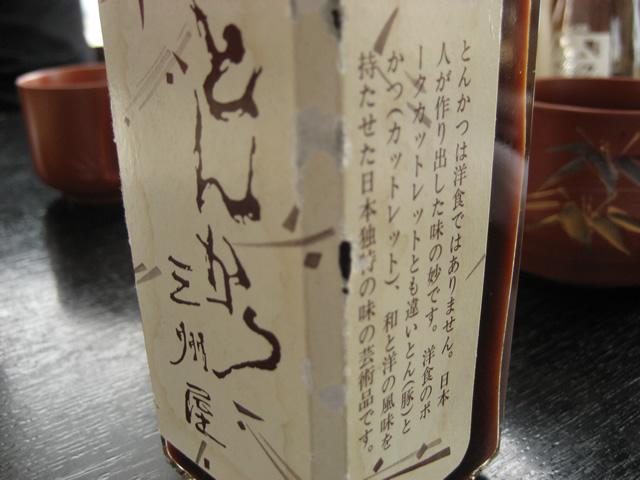 とんかつ
三州屋
とんかつは洋食ではありません。日本
人が作り出した味の妙です。洋食のポ
ータカットレットとも違いとん(豚)と
かつ(カットレット)、和と洋の風味を
持たせた日本独特の味の芸術品です。